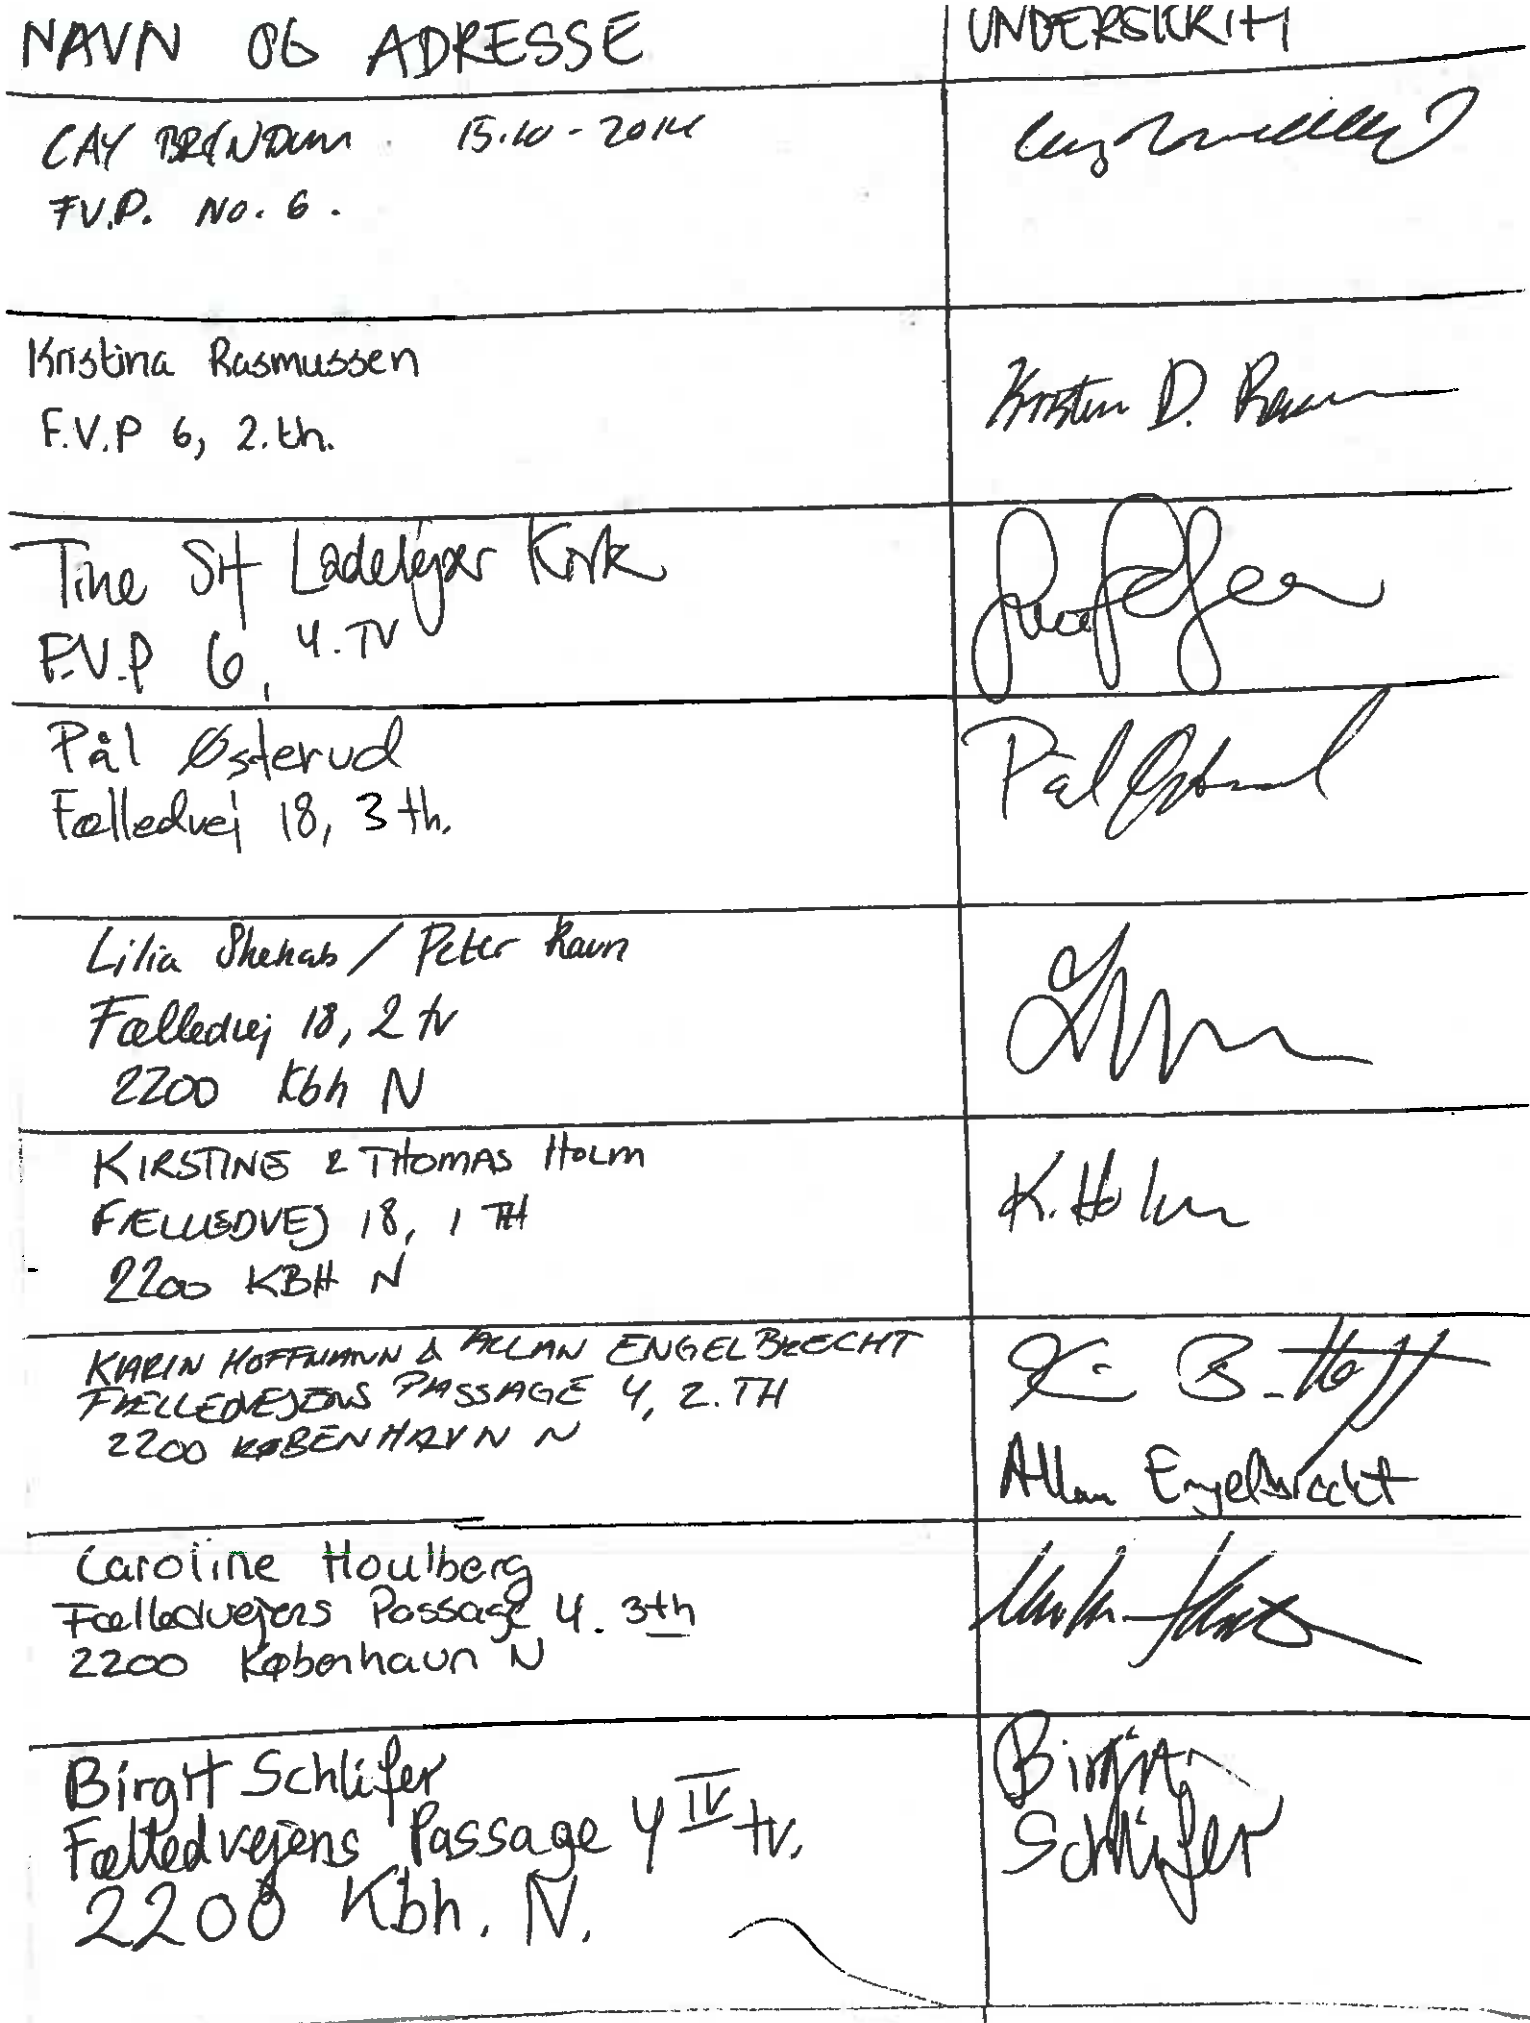 NAVN OG ADRESSE
UNDERSKRIFT
CAY BRØNDUM 15.10-2014
F.V.P. NO. 6.
Kristina Rasmussen
F.V.P 6, 2.th.
Kristina D.
Tine Ladelejær Kirk
F.V.P 6, 4.TV
Pål Østerud
Fælledvej 18, 3 th.
Pål Østerud
Lilia Shehab / Peter Ravn
Fælledvej 18, 2 tv
2200 Kbh N
KIRSTINE & THOMAS HOLM
FÆLLEDVEJ 18, 1 TH
2200 KBH N
K. Holm
KARIN HOFFMANN & ALLAN ENGELBRECHT
FÆLLEDVEJENS PASSAGE 4, 2. TH
2200 KØBENHAVN N
Allan Engelbrecht
Caroline Houlberg
Fælledvejens Passage 4. 3th
2200 København N
Birgit Schlüfer
Fælledvejens Passage 4 IV tv.
2200 Kbh. N.
Birgit
Schlüfer